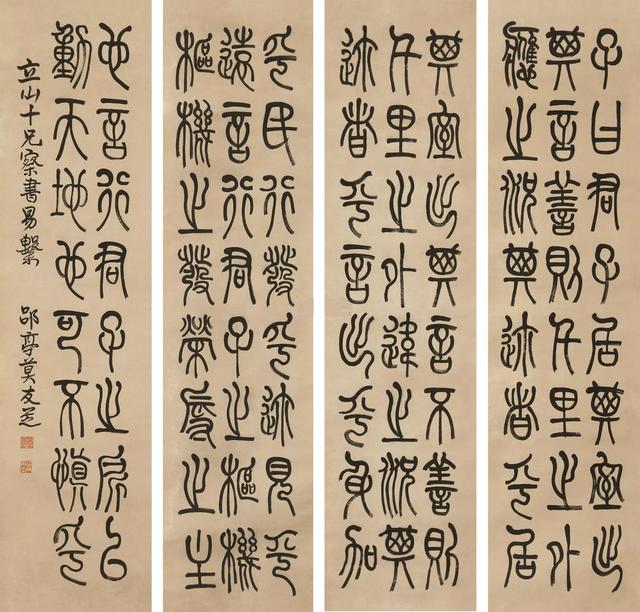 子曰君子居其室出
其言善則千里之外
應之況其迩者乎居
其室出其言不善則
千里之外違之況其
迩者乎言出乎身加
乎民行發乎迩見乎
遠言行君子之樞機
樞機之發榮辱之主
也言行君子之所以
動天地也可不慎乎
立山十兄察書易繫 郘亭莫友芝